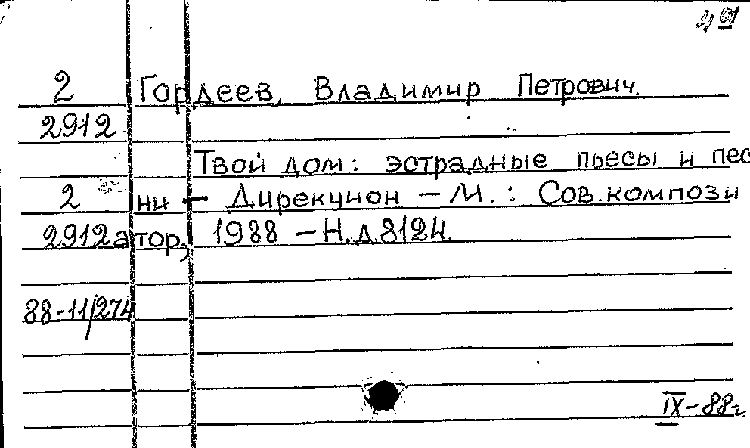 2 Гордеев, Владимир Петрович.
2912
Твой дом: эстрадные пьесы и пес
2 ни – Дирекцион – М.: Сов.компози
2912а тор, 1988 – Н.д.8124.
88-11/274
IX-88г.